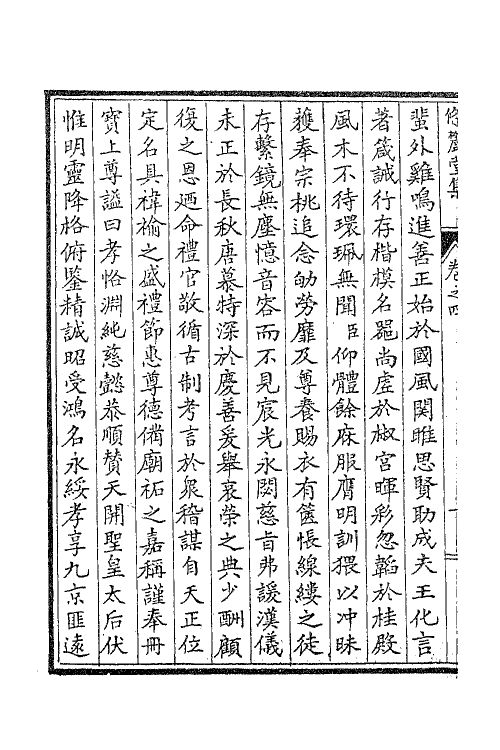 卷之四
蜚外雞鳴進善正始於國風関雎思賢助成夫王化言
著箴誠行存楷模名噐尚虚於椒宮暉彩忽韜於桂殿
風木不待環珮無聞臣仰體餘庥服膺明訓猥以冲昧
獲奉宗祧追念劬勞靡及尊養賜衣有篋悵線縷之徒
存繫鏡無塵憶音容而不見宸光永閟慈旨弗諼漢儀
未正於長秋唐慕特深於慶善爰舉哀榮之典少酬顧
復之恩廼命禮官敬循古制考言於衆稽謀自天正位
定名具褘褕之盛禮節惠尊德備廟祏之嘉稱謹奉冊
寳上尊謚曰孝恪淵純慈懿恭順贊天開聖皇太后伏
惟明靈降格俯鑒精誠昭受鴻名永綏孝享九京匪遠